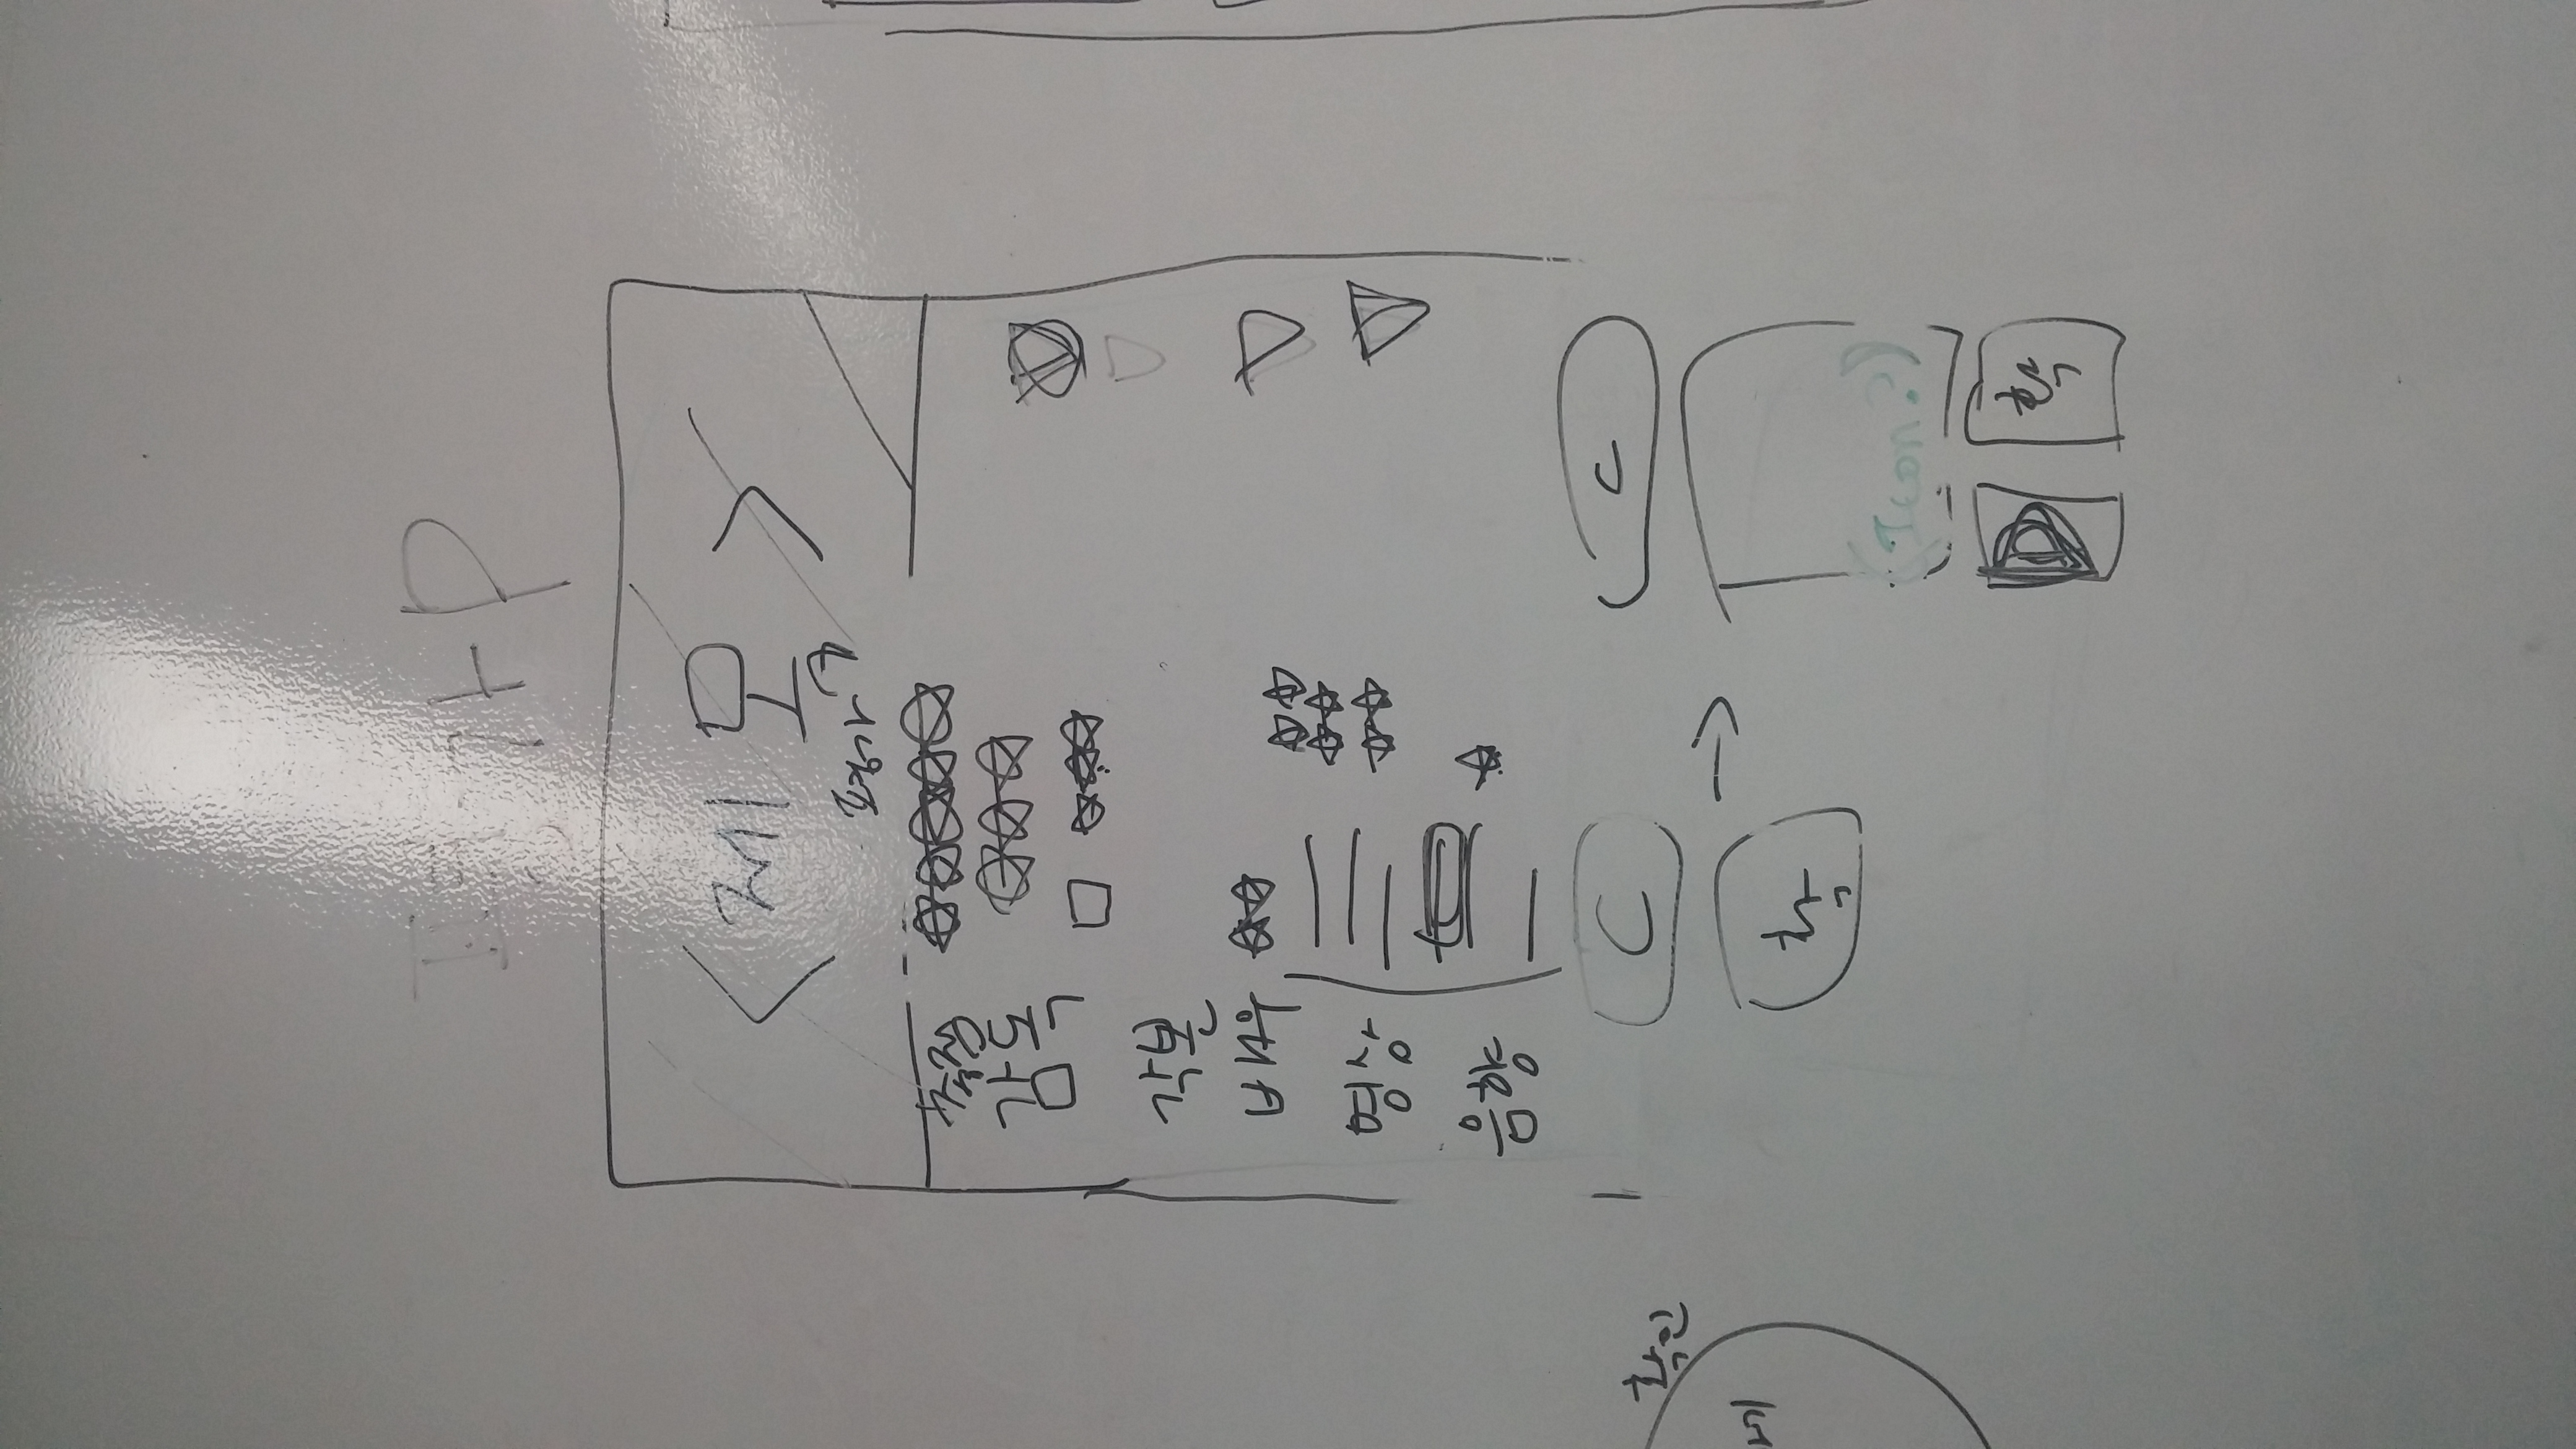 평가P
<제목>
평가
총점
감독
각본
배우
영상
음향
C
C
확인
네
확
(Icon?)
확